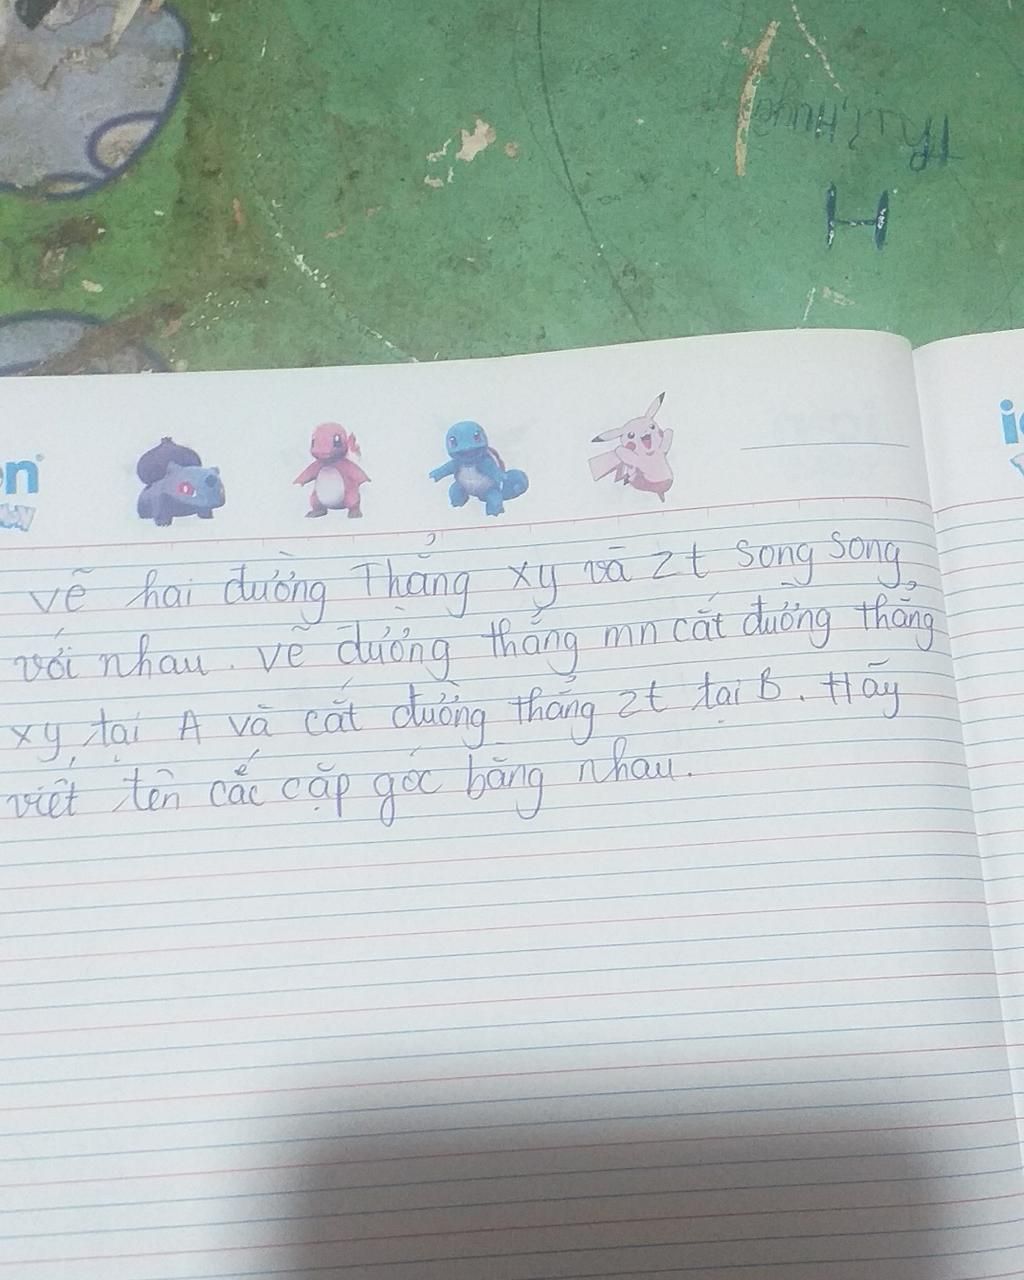 H
vẽ hai đường Thẳng xy và zt song song
với nhau. vẽ đường thẳng mn cắt đường thẳng
xy tại A và cắt đường thẳng zt tại B. Hãy
viết tên các cặp góc bằng nhau.